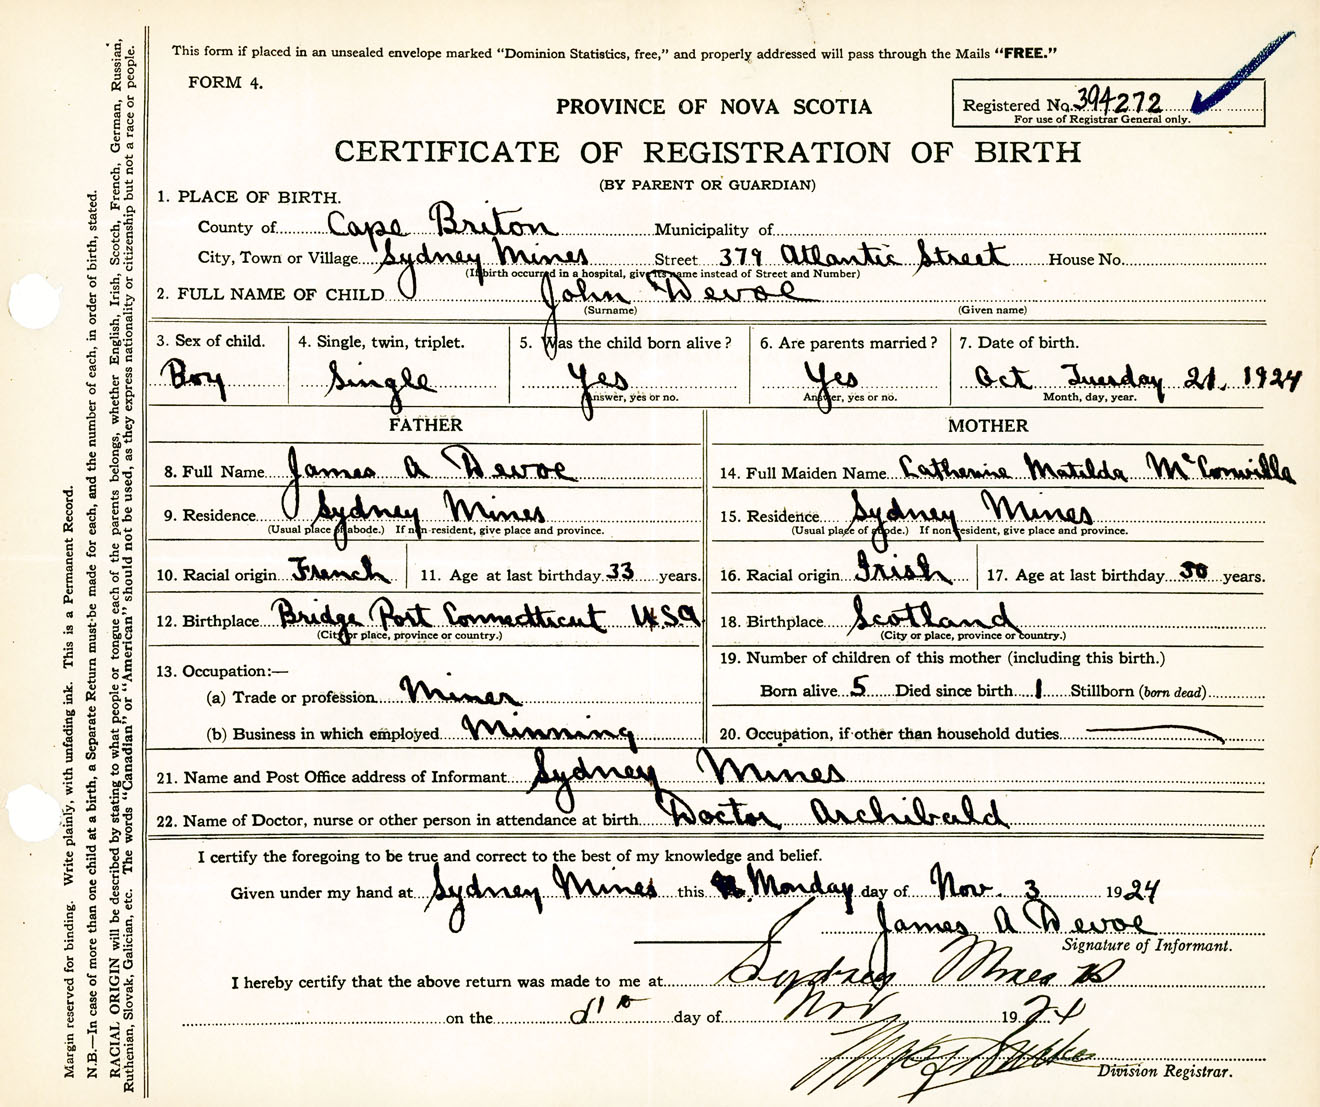 This form if placed in an unsealed envelope marked "Dominion Statistics, free," and properly addressed will pass through the Mails "FREE."
FORM 4.
Registered No. 394272
For use of Registrar General only.
PROVINCE OF NOVA SCOTIA
CERTIFICATE OF REGISTRATION OF BIRTH
(BY PARENT OR GUARDIAN)
1. PLACE OF BIRTH.
County of Cape Briton Municipality of
City, Town or Village Sydney Mines Street 379 Atlantic Street House No.
(If birth occurred in a hospital, give its name instead of Street and Number)
2. FULL NAME OF CHILD John Devoe
(Surname) (Given name)
3. Sex of child. 4. Single, twin, triplet. 5. Was the child born alive? 6. Are parents married? 7. Date of birth.
Boy Single Yes Yes Oct Tuesday 21. 1924
Answer, yes or no. Answer, yes or no. Month, day, year.
FATHER MOTHER
8. Full Name James A Devoe 14. Full Maiden Name Catherine Matilda McConville
9. Residence Sydney Mines 15. Residence Sydney Mines
(Usual place of abode.) If non-resident, give place and province. (Usual place of abode.) If non resident, give place and province.
10. Racial origin French 11. Age at last birthday 33 years. 16. Racial origin Irish 17. Age at last birthday 30 years.
12. Birthplace Bridge Port Connetticut U.S.A 18. Birthplace Scotland
(City or place, province or country.) (City or place, province or country.)
13. Occupation:— 19. Number of children of this mother (including this birth.)
(a) Trade or profession Miner Born alive 5 Died since birth 1 Stillborn (born dead)
(b) Business in which employed Minning 20. Occupation, if other than household duties
21. Name and Post Office address of Informant Sydney Mines
22. Name of Doctor, nurse or other person in attendance at birth Doctor Archibald
I certify the foregoing to be true and correct to the best of my knowledge and belief.
Given under my hand at Sydney Mines this Monday day of Nov. 3 1924
James A Devoe
Signature of Informant.
I hereby certify that the above return was made to me at Sydney Mines
on the day of Nov 1924
Division Registrar.
Margin reserved for binding. Write plainly, with unfading ink. This is a Permanent Record.
N.B.—In case of more than one child at a birth, a Separate Return must be made for each, and the number of each, in order of birth, stated.
RACIAL ORIGIN will be described by stating to what people or tongue each of the parents belongs, whether English, Irish, Scotch, French, German, Russian,
Ruthenian, Slovak, Galician, etc. The words "Canadian" or "American" should not be used, as they express nationality or citizenship but not a race or people.